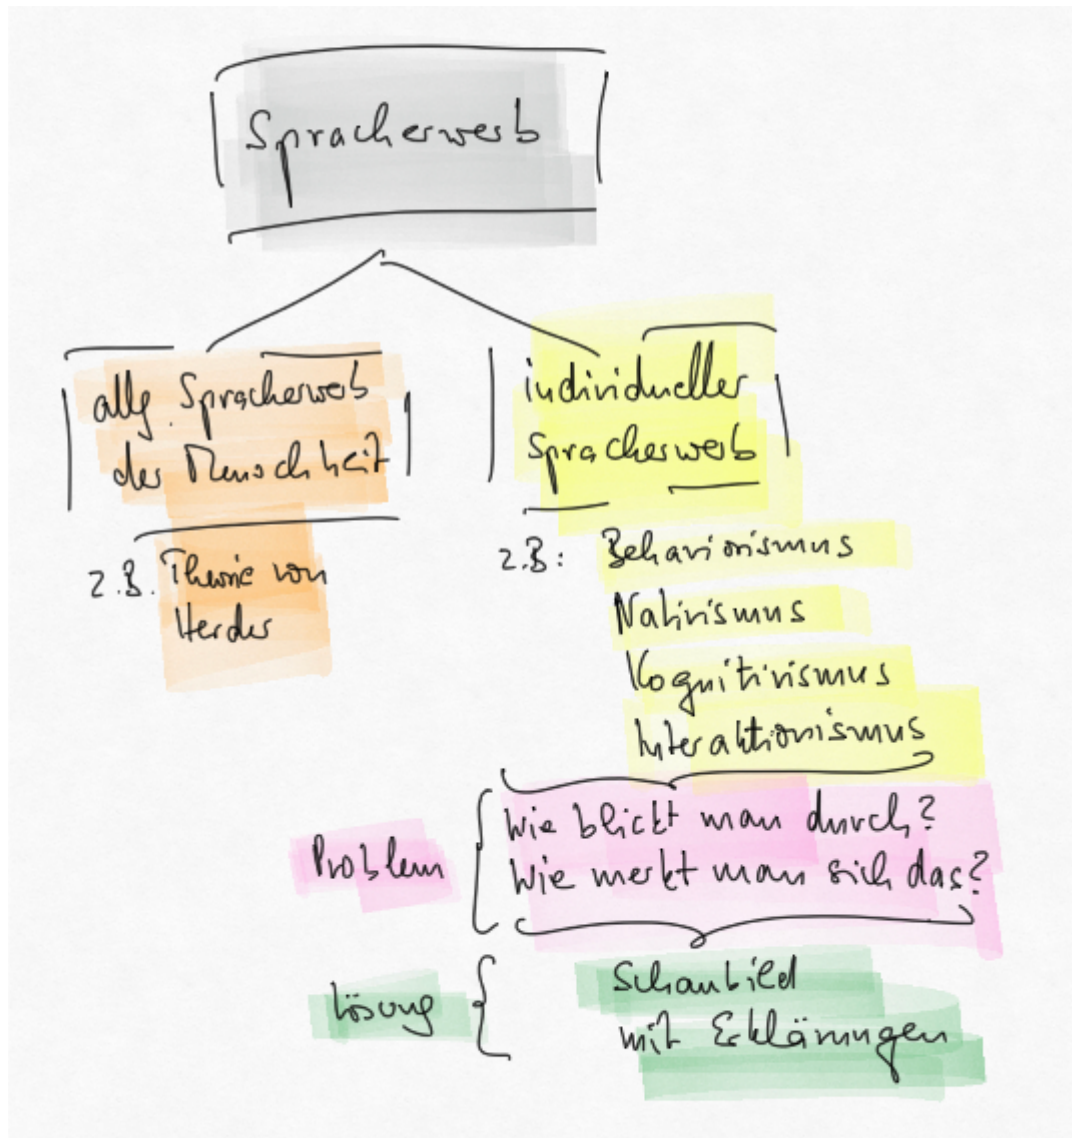 Spracherwerb
allg. Spracherwerb
der Menschheit
z.B. Theorie von
Herder
individueller
Spracherwerb
z.B: Behaviorismus
Nativismus
Kognitivismus
Interaktionismus
Problem
Wie blickt man durch?
Wie merkt man sich das?
Lösung
Schaubild
mit Erklärungen